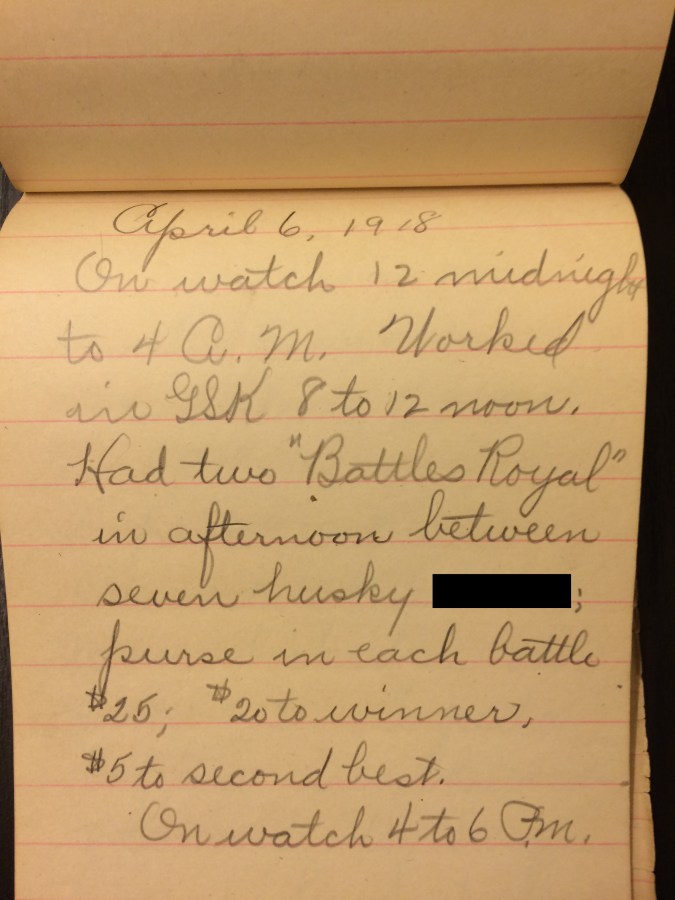 April 6, 1918
On watch 12 midnight
to 4 A.M. Worked
in GSK 8 to 12 noon.
Had two "Battles Royal"
in afternoon between
seven husky ;
purse in each battle
$25; $20 to winner,
$5 to second best.
On watch 4 to 6 P.m.